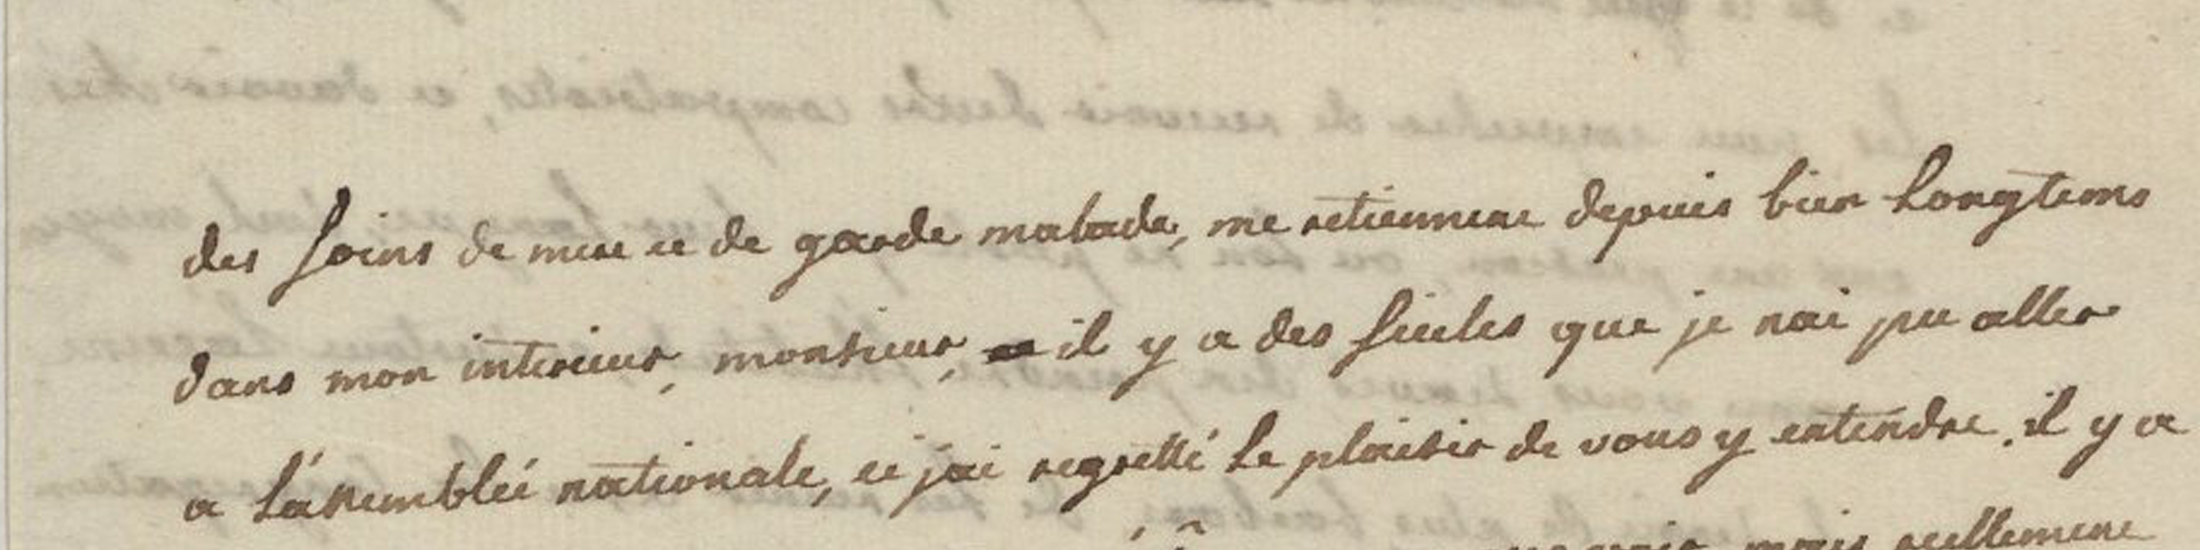 des soins de mere et de garde malade, me retiennent depuis bien longtems
dans mon interieur, monsieur, il y a des siecles que je nai pu aller
a lássemblée nationale, et jai regretté le plaisir de vous y entendre. il y a
mais reellement